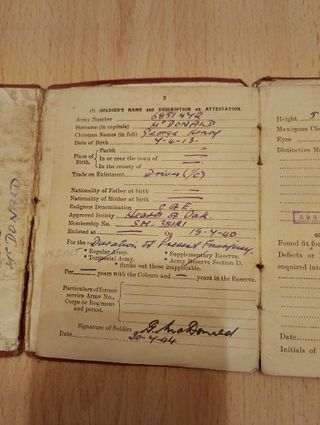 McDONALD
2
(I) SOLDIER'S NAME and DESCRIPTION on ATTESTATION.
Army Number 6851442
Surname (in capitals) McDONALD
Christian Names (in full) George Henry
Date of Birth 7-4-13.
Place of Birth
Parish
In or near the town of
In the county of
Trade on Enlistment Driver
Nationality of Father at birth
Nationality of Mother at birth
Religious Denomination C of E.
Approved Society Hearts of Oak.
Membership No. S.M. 38121
Enlisted at On 18-4-40
For the:— Duration of Present Emergency.
* Regular Army. * Supplementary Reserve.
* Territorial Army. * Army Reserve Section D.
* Strike out those inapplicable.
For years with the Colours and years in the Reserve.
Particulars of former
service Army No.,
Corps or Regiment
and period.
Signature of Soldier G. McDonald
Date 20-4-44
Height 5
Maximum Ches
Distinctive Mar
Found fit for
Defects or
enquired into
Date
Initials of